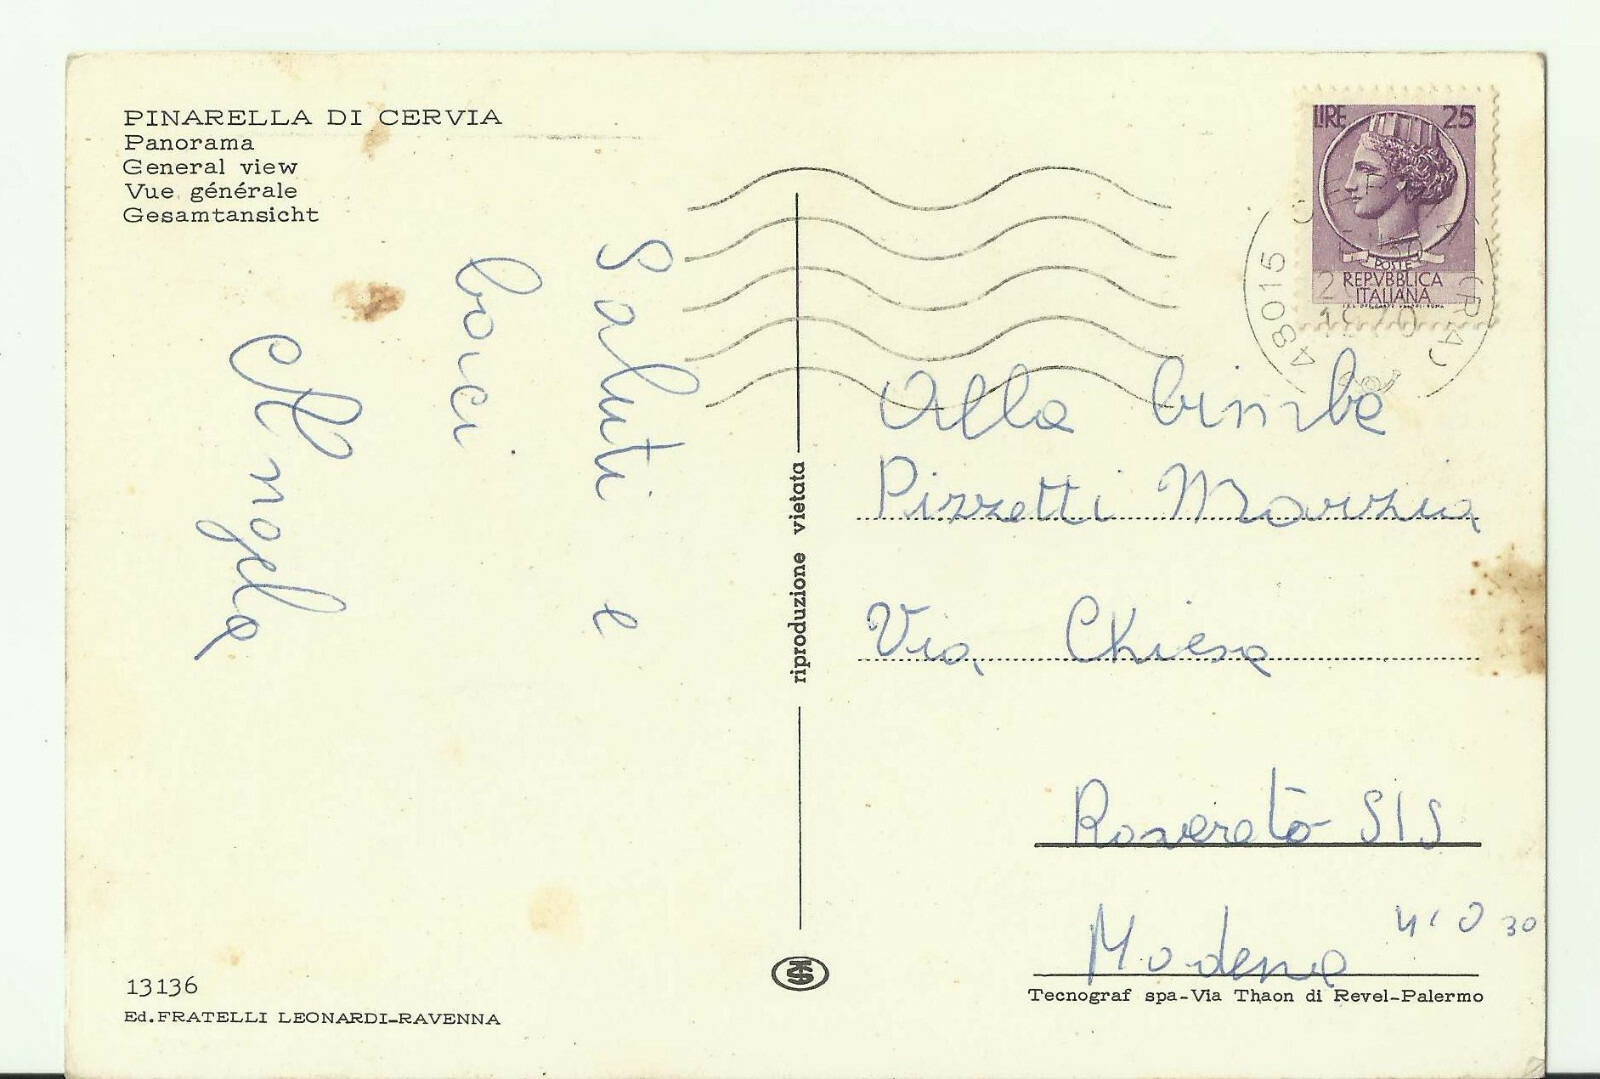 PINARELLA DI CERVIA
Panorama
General view
Vue générale
Gesamtansicht
Saluti e
baci
Angela
13136
Ed. FRATELLI LEONARDI-RAVENNA
riproduzione vietata
LIRE 25
POSTE
REPVBBLICA
ITALIANA
48015 CERVIA (RA)
1970
Alla bimba
Pizzetti Marzia
Via Chiesa
Rovereto S/S
Modena
41030
Tecnograf spa-Via Thaon di Revel-Palermo